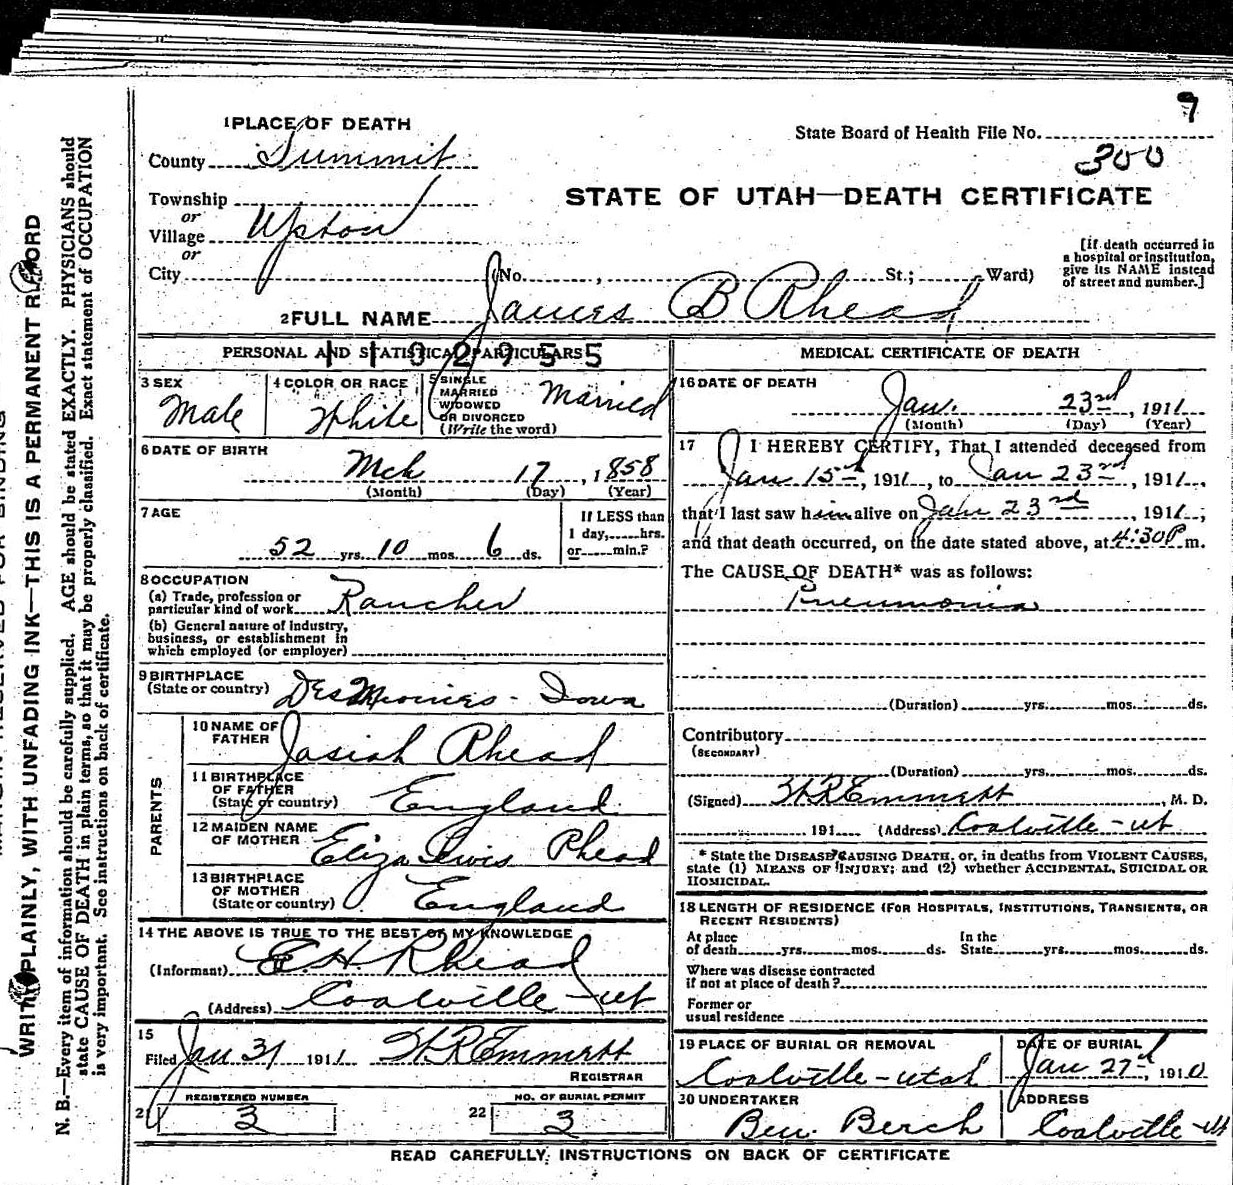 9
1 PLACE OF DEATH
State Board of Health File No.
300
County Summit
STATE OF UTAH—DEATH CERTIFICATE
Township
or
Village Upton
or
City (No. , St.; Ward)
[If death occurred in
a hospital or institution,
give its NAME instead
of street and number.]
2 FULL NAME James B Rhead
PERSONAL AND STATISTICAL PARTICULARS
1102955
3 SEX
Male
4 COLOR OR RACE
White
5 SINGLE
MARRIED
WIDOWED
OR DIVORCED
(Write the word)
Married
6 DATE OF BIRTH
Mch 17, 1858
(Month) (Day) (Year)
7 AGE
52 yrs. 10 mos. 6 ds.
If LESS than
1 day, hrs.
or min.?
8 OCCUPATION
(a) Trade, profession or
particular kind of work Rancher
(b) General nature of industry,
business, or establishment in
which employed (or employer)
9 BIRTHPLACE
(State or country) Des Moines - Iowa
PARENTS
10 NAME OF
FATHER Josiah Rhead
11 BIRTHPLACE
OF FATHER
(State or country) England
12 MAIDEN NAME
OF MOTHER Eliza Lewis Rhead
13 BIRTHPLACE
OF MOTHER
(State or country) England
14 THE ABOVE IS TRUE TO THE BEST OF MY KNOWLEDGE
(Informant) E.H. Rhead
(Address) Coalville - ut
15
Filed Jan 31 1911 H R Emmett
REGISTRAR
21 REGISTERED NUMBER
3
22 NO. OF BURIAL PERMIT
3
MEDICAL CERTIFICATE OF DEATH
16 DATE OF DEATH
Jan. 23rd, 1911
(Month) (Day) (Year)
17 I HEREBY CERTIFY, That I attended deceased from
Jan 15th, 1911, to Jan 23rd, 1911,
that I last saw him alive on Jan 23rd, 1911;
and that death occurred, on the date stated above, at 4:30P m.
The CAUSE OF DEATH* was as follows:
Pneumonia
(Duration) yrs. mos. ds.
Contributory
(SECONDARY)
(Duration) yrs. mos. ds.
(Signed) H R Emmett, M. D.
191 (Address) Coalville - ut
* State the DISEASE CAUSING DEATH, or, in deaths from VIOLENT CAUSES,
state (1) MEANS OF INJURY; and (2) whether ACCIDENTAL, SUICIDAL OR
HOMICIDAL.
18 LENGTH OF RESIDENCE (FOR HOSPITALS, INSTITUTIONS, TRANSIENTS, OR
RECENT RESIDENTS)
At place
of death yrs. mos. ds.
In the
State yrs. mos. ds.
Where was disease contracted
if not at place of death?
Former or
usual residence
19 PLACE OF BURIAL OR REMOVAL
Coalville - Utah
DATE OF BURIAL
Jan 27th, 1910
20 UNDERTAKER
Ben. Berch
ADDRESS
Coalville - Ut
READ CAREFULLY INSTRUCTIONS ON BACK OF CERTIFICATE
WRITE PLAINLY, WITH UNFADING INK—THIS IS A PERMANENT RECORD
N. B.—Every item of information should be carefully supplied. AGE should be stated EXACTLY. PHYSICIANS should
state CAUSE OF DEATH in plain terms, so that it may be properly classified. Exact statement of OCCUPATION
is very important. See instructions on back of certificate.